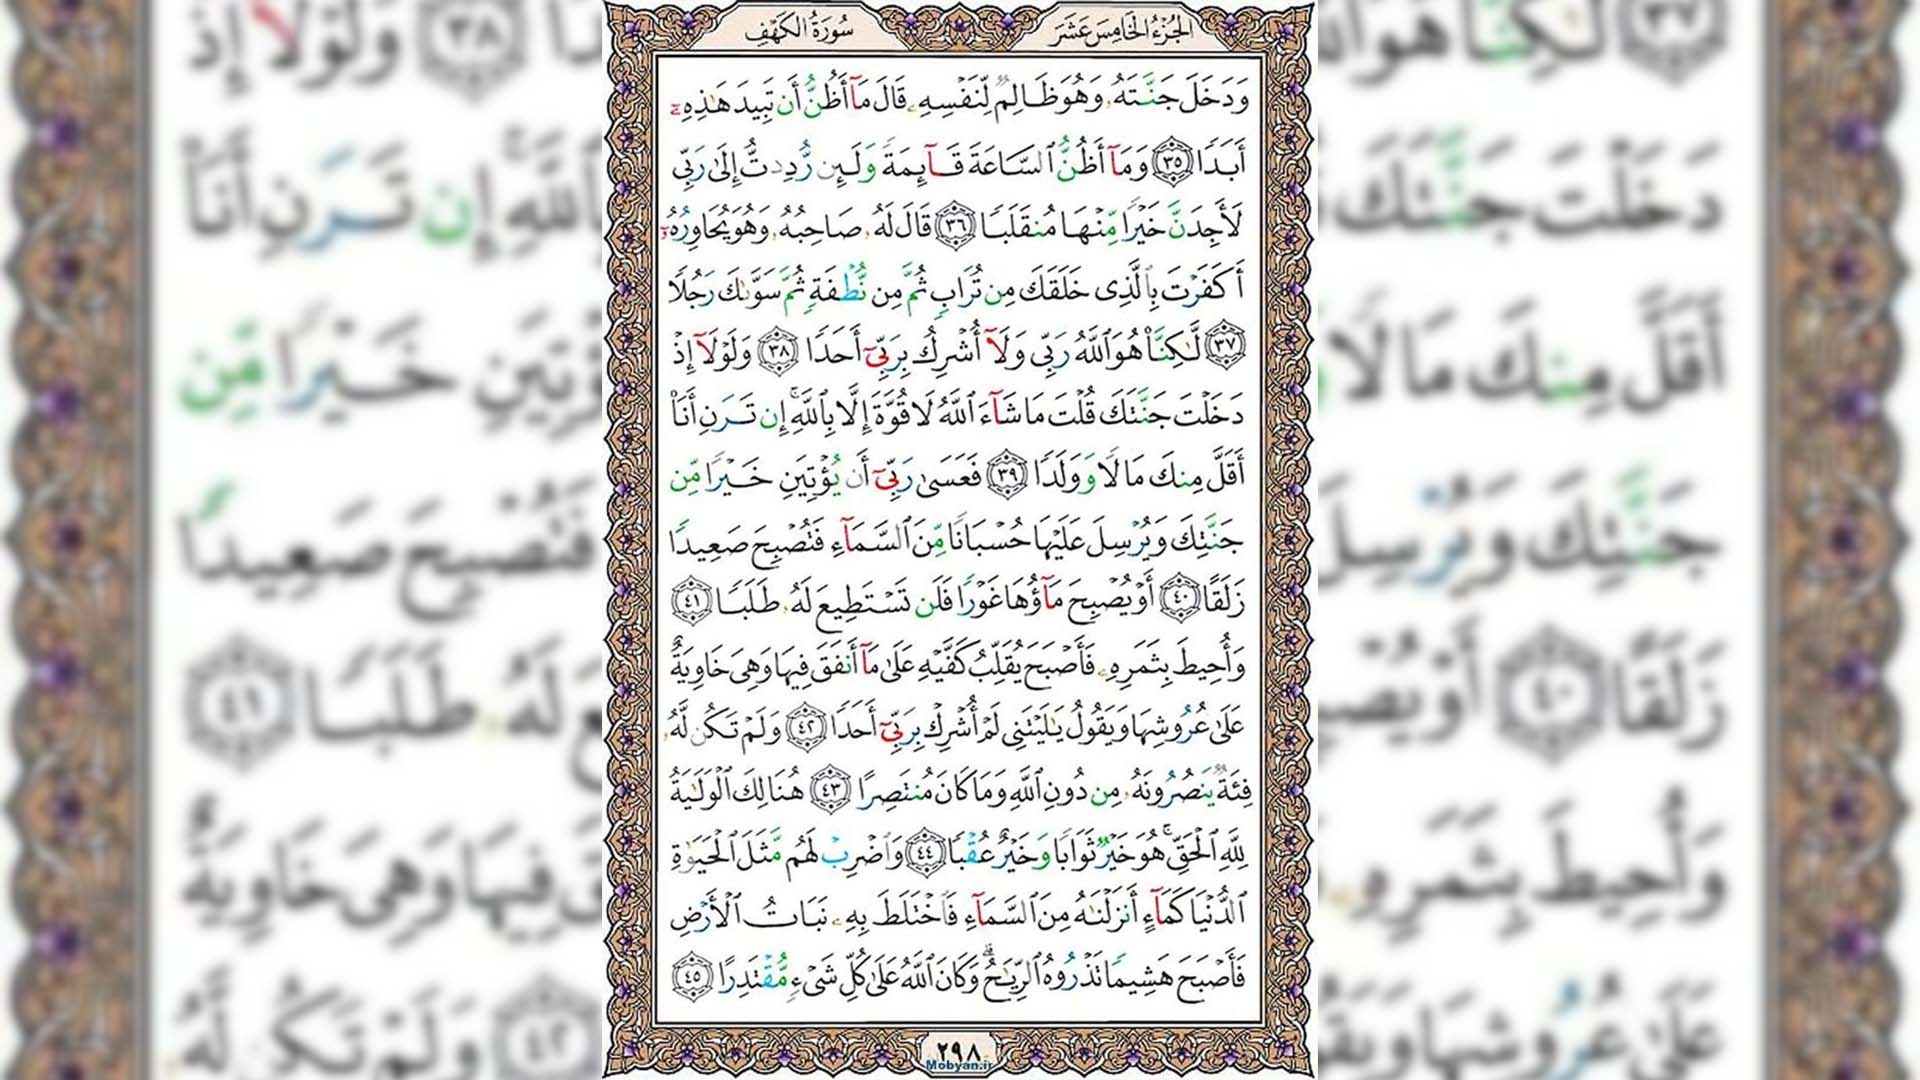 الجُزْءُ الخَامِسَ عَشَرَ
سُورَةُ الكَهْفِ
وَدَخَلَ جَنَّتَهُۥ وَهُوَ ظَالِمٌ لِّنَفْسِهِۦ قَالَ مَآ أَظُنُّ أَن تَبِيدَ هَـٰذِهِۦٓ
أَبَدًا ٣٥ وَمَآ أَظُنُّ ٱلسَّاعَةَ قَآئِمَةً وَلَئِن رُّدِدتُّ إِلَىٰ رَبِّى
لَأَجِدَنَّ خَيْرًا مِّنْهَا مُنقَلَبًا ٣٦ قَالَ لَهُۥ صَاحِبُهُۥ وَهُوَ يُحَاوِرُهُۥٓ
أَكَفَرْتَ بِٱلَّذِى خَلَقَكَ مِن تُرَابٍ ثُمَّ مِن نُّطْفَةٍ ثُمَّ سَوَّىٰكَ رَجُلًا
٣٧ لَّـٰكِنَّا۠ هُوَ ٱللَّهُ رَبِّى وَلَآ أُشْرِكُ بِرَبِّىٓ أَحَدًا ٣٨ وَلَوْلَآ إِذْ
دَخَلْتَ جَنَّتَكَ قُلْتَ مَا شَآءَ ٱللَّهُ لَا قُوَّةَ إِلَّا بِٱللَّهِ ۚ إِن تَرَنِ أَنَا۠
أَقَلَّ مِنكَ مَالًا وَوَلَدًا ٣٩ فَعَسَىٰ رَبِّىٓ أَن يُؤْتِيَنِ خَيْرًا مِّن
جَنَّتِكَ وَيُرْسِلَ عَلَيْهَا حُسْبَانًا مِّنَ ٱلسَّمَآءِ فَتُصْبِحَ صَعِيدًا
زَلَقًا ٤٠ أَوْ يُصْبِحَ مَآؤُهَا غَوْرًا فَلَن تَسْتَطِيعَ لَهُۥ طَلَبًا ٤١
وَأُحِيطَ بِثَمَرِهِۦ فَأَصْبَحَ يُقَلِّبُ كَفَّيْهِ عَلَىٰ مَآ أَنفَقَ فِيهَا وَهِىَ خَاوِيَةٌ
عَلَىٰ عُرُوشِهَا وَيَقُولُ يَـٰلَيْتَنِى لَمْ أُشْرِكْ بِرَبِّىٓ أَحَدًا ٤٢ وَلَمْ تَكُن لَّهُۥ
فِئَةٌ يَنصُرُونَهُۥ مِن دُونِ ٱللَّهِ وَمَا كَانَ مُنتَصِرًا ٤٣ هُنَالِكَ ٱلْوَلَـٰيَةُ
لِلَّهِ ٱلْحَقِّ ۚ هُوَ خَيْرٌ ثَوَابًا وَخَيْرٌ عُقْبًا ٤٤ وَٱضْرِبْ لَهُم مَّثَلَ ٱلْحَيَوٰةِ
ٱلدُّنْيَا كَمَآءٍ أَنزَلْنَـٰهُ مِنَ ٱلسَّمَآءِ فَٱخْتَلَطَ بِهِۦ نَبَاتُ ٱلْأَرْضِ
فَأَصْبَحَ هَشِيمًا تَذْرُوهُ ٱلرِّيَـٰحُ ۗ وَكَانَ ٱللَّهُ عَلَىٰ كُلِّ شَىْءٍ مُّقْتَدِرًا ٤٥
٢٩٨
Mobyan.ir